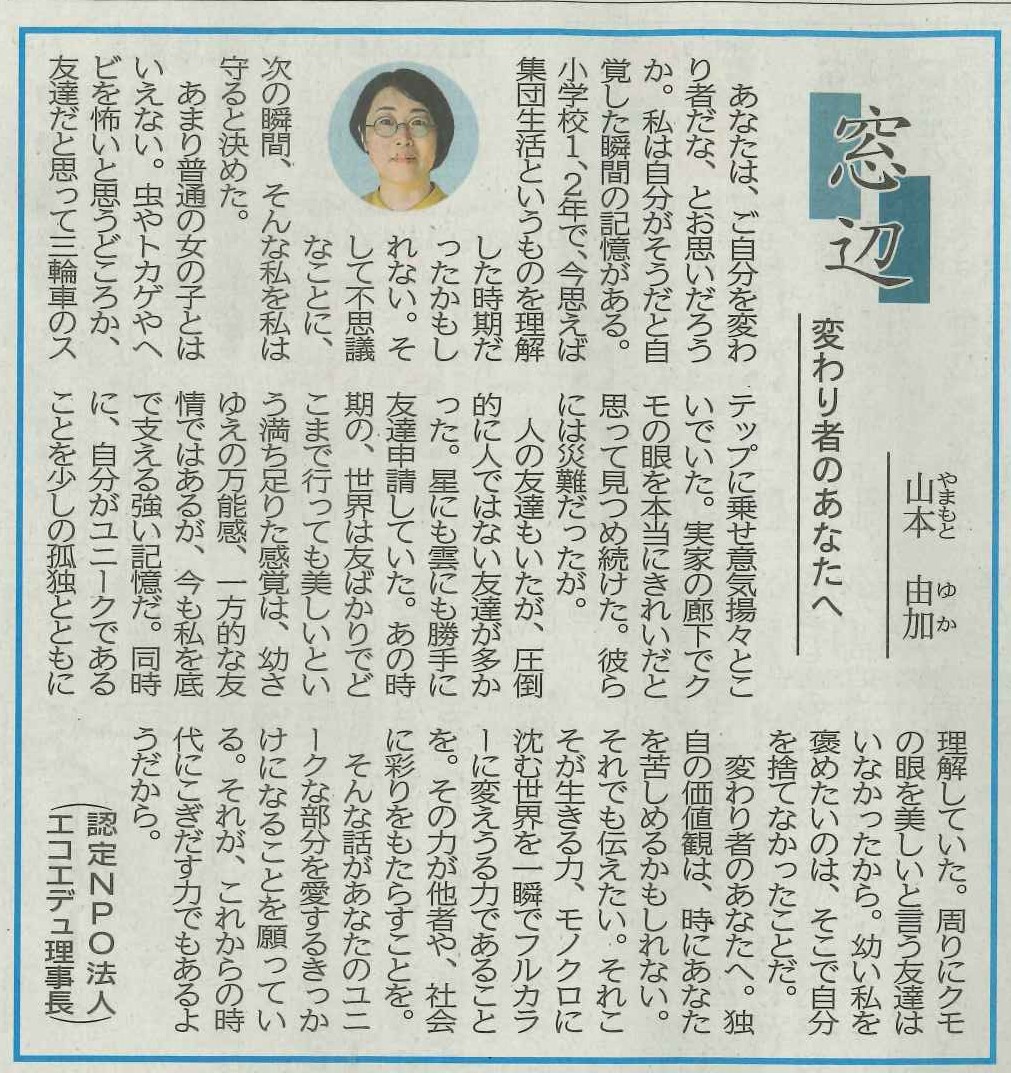 窓辺
変わり者のあなたへ
やまもと ゆか
山本 由加
あなたは、ご自分を変わ
り者だな、とお思いだろう
か。私は自分がそうだと自
覚した瞬間の記憶がある。
小学校1、2年で、今思えば
集団生活というものを理解
した時期だ
ったかもし
れない。そ
して不思議
なことに、
次の瞬間、そんな私を私は
守ると決めた。
あまり普通の女の子とは
いえない。虫やトカゲやヘ
ビを怖いと思うどころか、
友達だと思って三輪車のス
テップに乗せ意気揚々とこ
いでいた。実家の廊下でク
モの眼を本当にきれいだと
思って見つめ続けた。彼ら
には災難だったが。
人の友達もいたが、圧倒
的に人ではない友達が多か
った。星にも雲にも勝手に
友達申請していた。あの時
期の、世界は友ばかりでど
こまで行っても美しいとい
う満ち足りた感覚は、幼さ
ゆえの万能感、一方的な友
情ではあるが、今も私を底
で支える強い記憶だ。同時
に、自分がユニークである
ことを少しの孤独とともに
理解していた。周りにクモ
の眼を美しいと言う友達は
いなかったから。幼い私を
褒めたいのは、そこで自分
を捨てなかったことだ。
変わり者のあなたへ。独
自の価値観は、時にあなた
を苦しめるかもしれない。
それでも伝えたい。それこ
そが生きる力、モノクロに
沈む世界を一瞬でフルカラ
ーに変えうる力であること
を。その力が他者や、社会
に彩りをもたらすことを。
そんな話があなたのユニ
ークな部分を愛するきっか
けになることを願ってい
る。それが、これからの時
代にこぎだす力でもあるよ
うだから。
（認定NPO法人
エコエデュ理事長）